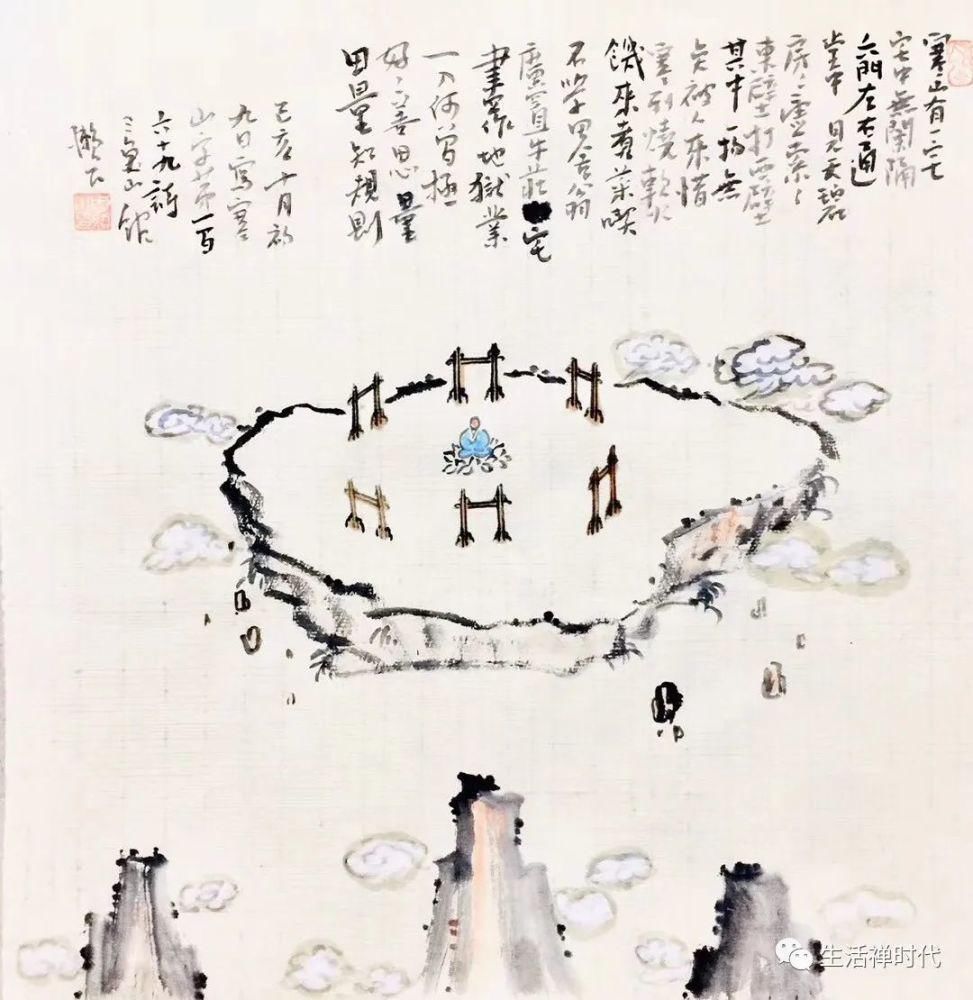 寒山有一宅
宅中無闌隔
六門左右通
堂中見天碧
房々虛索々
東壁打西壁
其中一物無
免被人來惜
寒到燒軟火
饑來煮菜喫
不學田舍翁
廣置牛莊宅
盡作地獄業
一入何曾極
好々善思量
思量知規則
己亥十月初
九日寫寒
山子第一百
六十九詩
山館
生活禅时代